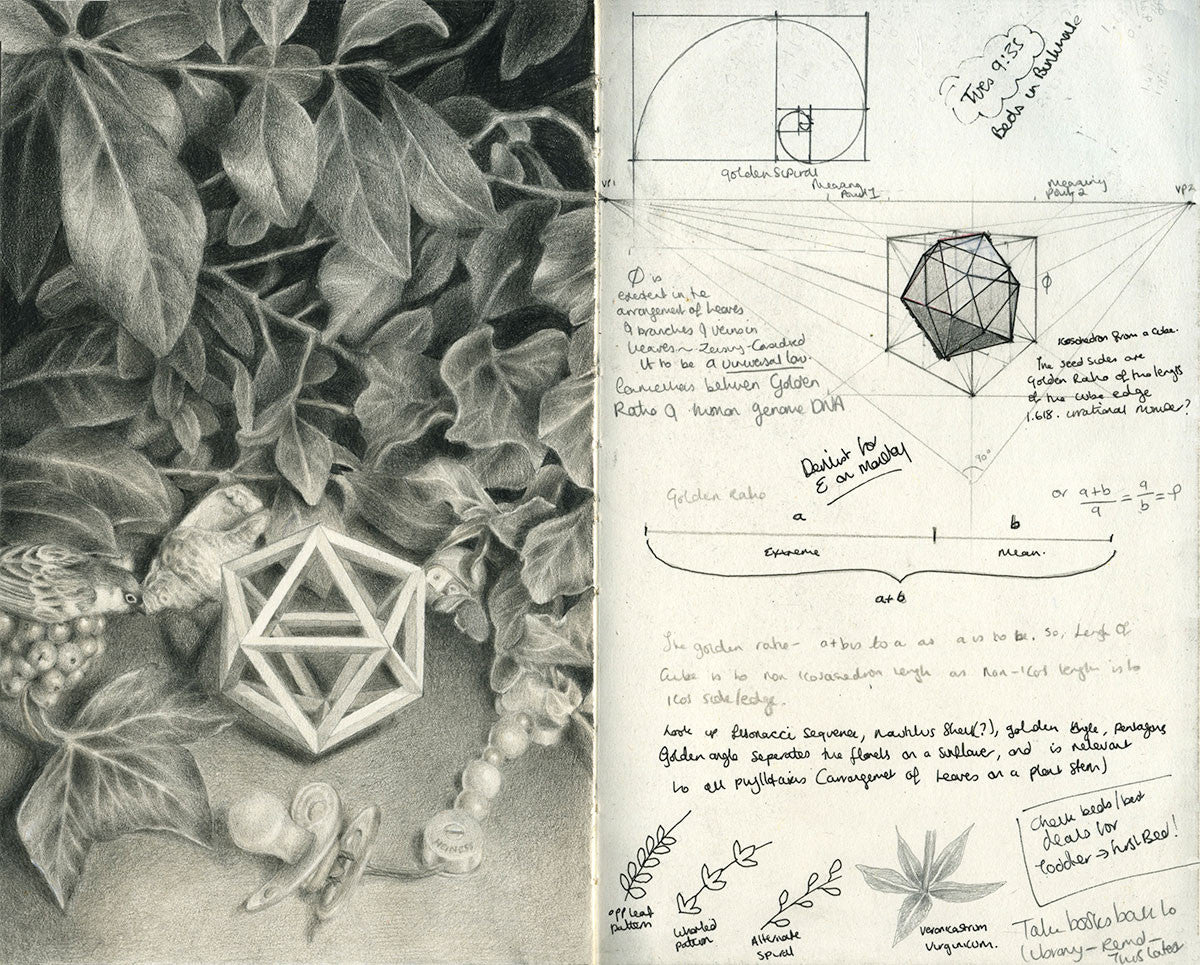 Tues 9:35
Beds in Birkdale
golden spiral
VP1
Measuring
point 1
Measuring
point 2
VP2
Ø is
existent in the
arrangement of leaves
& branches & veins in
leaves ~ Zeising - Considered
it to be a universal law.
Connections between Golden
Ratio & human genome DNA
Ø
Icosahedron from a cube.
The seed sides are
Golden Ratio of the length
of the cube edge
1.618. irrational number?
90°
Dentist for
E on Monday
Golden Ratio
or a+b/a = a/b = φ
a
b
Extreme
Mean.
a+b
The golden ratio - a+b is to a as a is to b. So, length of
Cube is to non icosahedron length as non-icos length is to
icos side/edge.
Look up fibonacci sequence, nautilus shell(?), golden angle, pentagons
Golden angle separates the florets on a sunflower, and is relevant
to all phyllotaxis (arrangement of leaves on a plant stem)
opp leaf
pattern
whorled
pattern
Alternate
spiral
Veronicastrum
Virginicum.
Check beds/best
deals for
Toddler → first Bed!
Take books back to
Library - Remd -